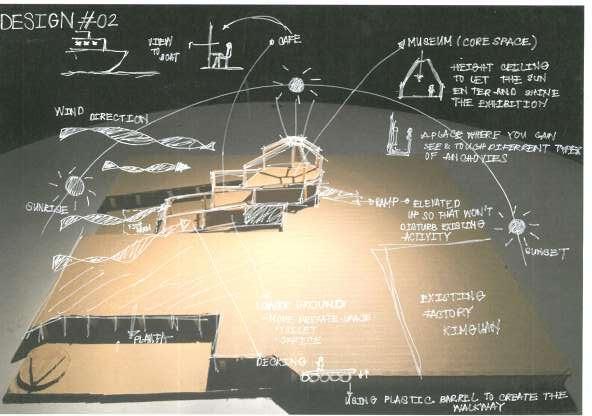 DESIGN #02
VIEW
TO
BOAT
CAFE
MUSEUM (CORE SPACE)
HEIGHT CEILING
TO LET THE SUN
ENTER AND SHINE
THE EXHIBITION
WIND DIRECTION
A PLACE WHERE YOU GAN
SEE & TOUCH DIFFERENT TYPES
OF ANCHOVIES
SUNRISE
RAMP
ELEVATED
UP SO THAT WON'T
DISTURB EXISTING
ACTIVITY
SUNSET
LOWER GROUND
- MORE PRIVATE SPACE
- TOILET
- OFFICE
EXISTING
FACTORY
KIMGUAN
PLANT
DECKING
USING PLASTIC BARREL TO CREATE THE
WALKWAY